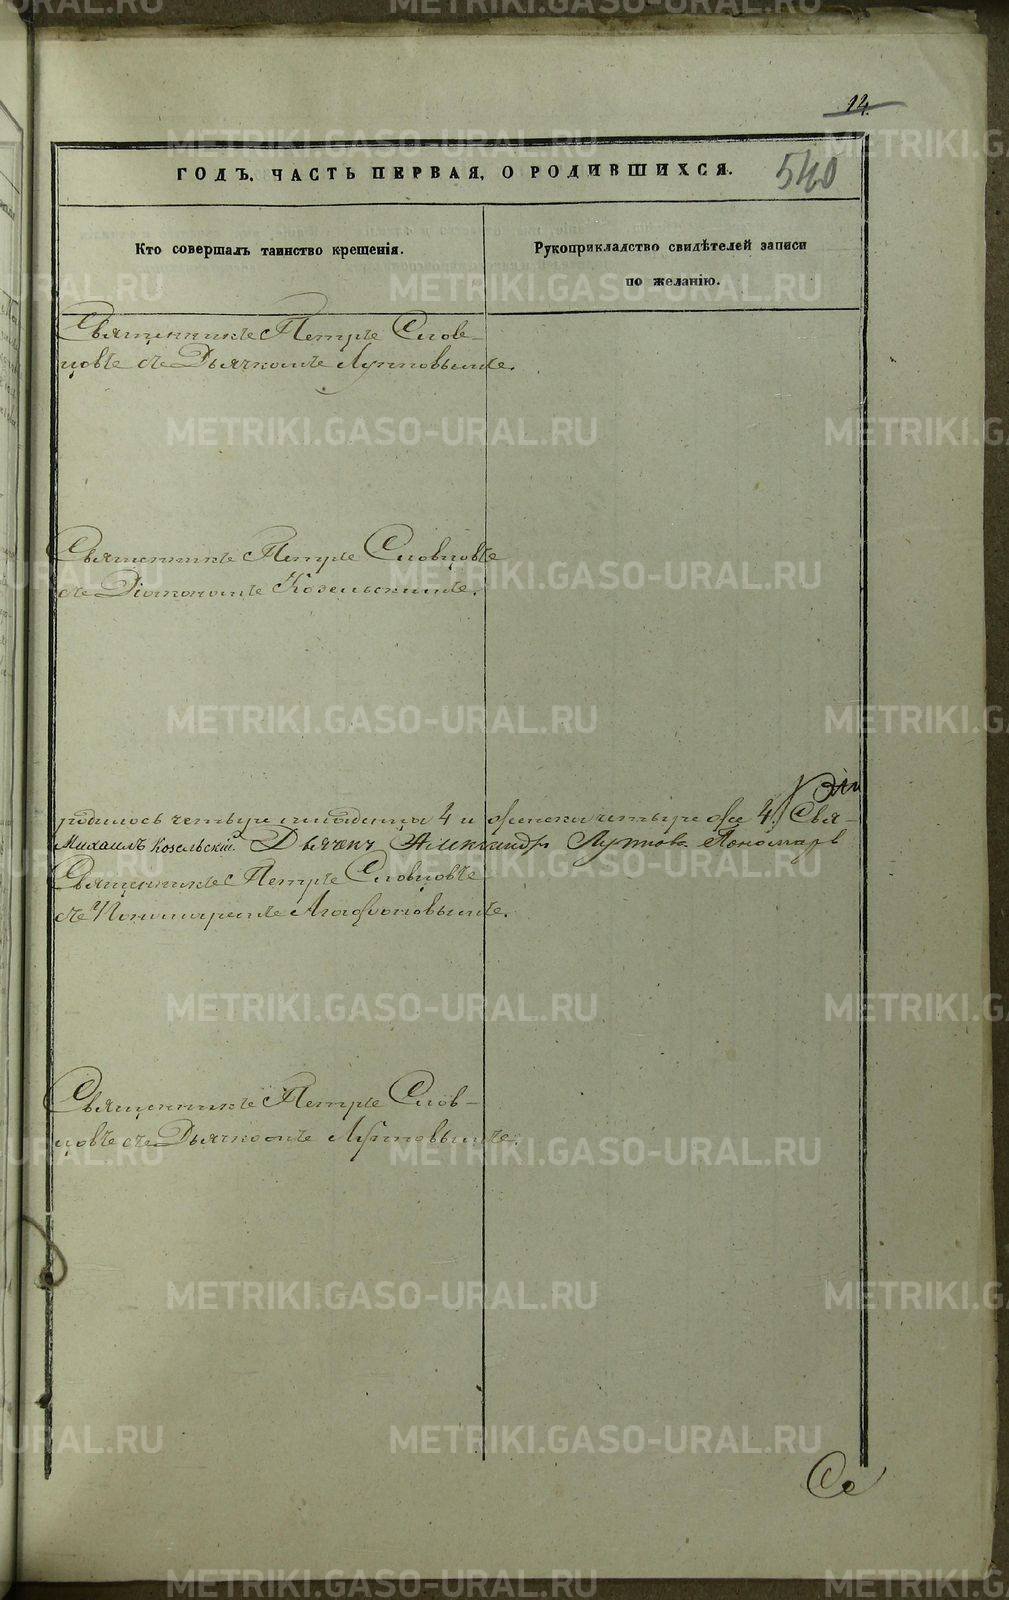 14.
540
ГОДЪ, ЧАСТЬ ПЕРВАЯ, О РОДИВШИХСЯ.
Кто совершалъ таинство крещенія.
Рукоприкладство свидѣтелей записи
по желанію.
Священникъ Петръ Слов-
цовъ съ Дьячкомъ Луповымъ.
Священникъ Петръ Словцовъ
съ Діакономъ Козельскимъ.
родилось четыре 4 и женска четыре же 4. Свя-
Михаилъ Козельскій. Дьячекъ Александръ Луповъ Пономарь
Священникъ Петръ Словцовъ
съ Пономаремъ Агафоновымъ.
Священникъ Петръ Слов-
цовъ съ Дьячкомъ Луповымъ.
METRIKI.GASO-URAL.RU